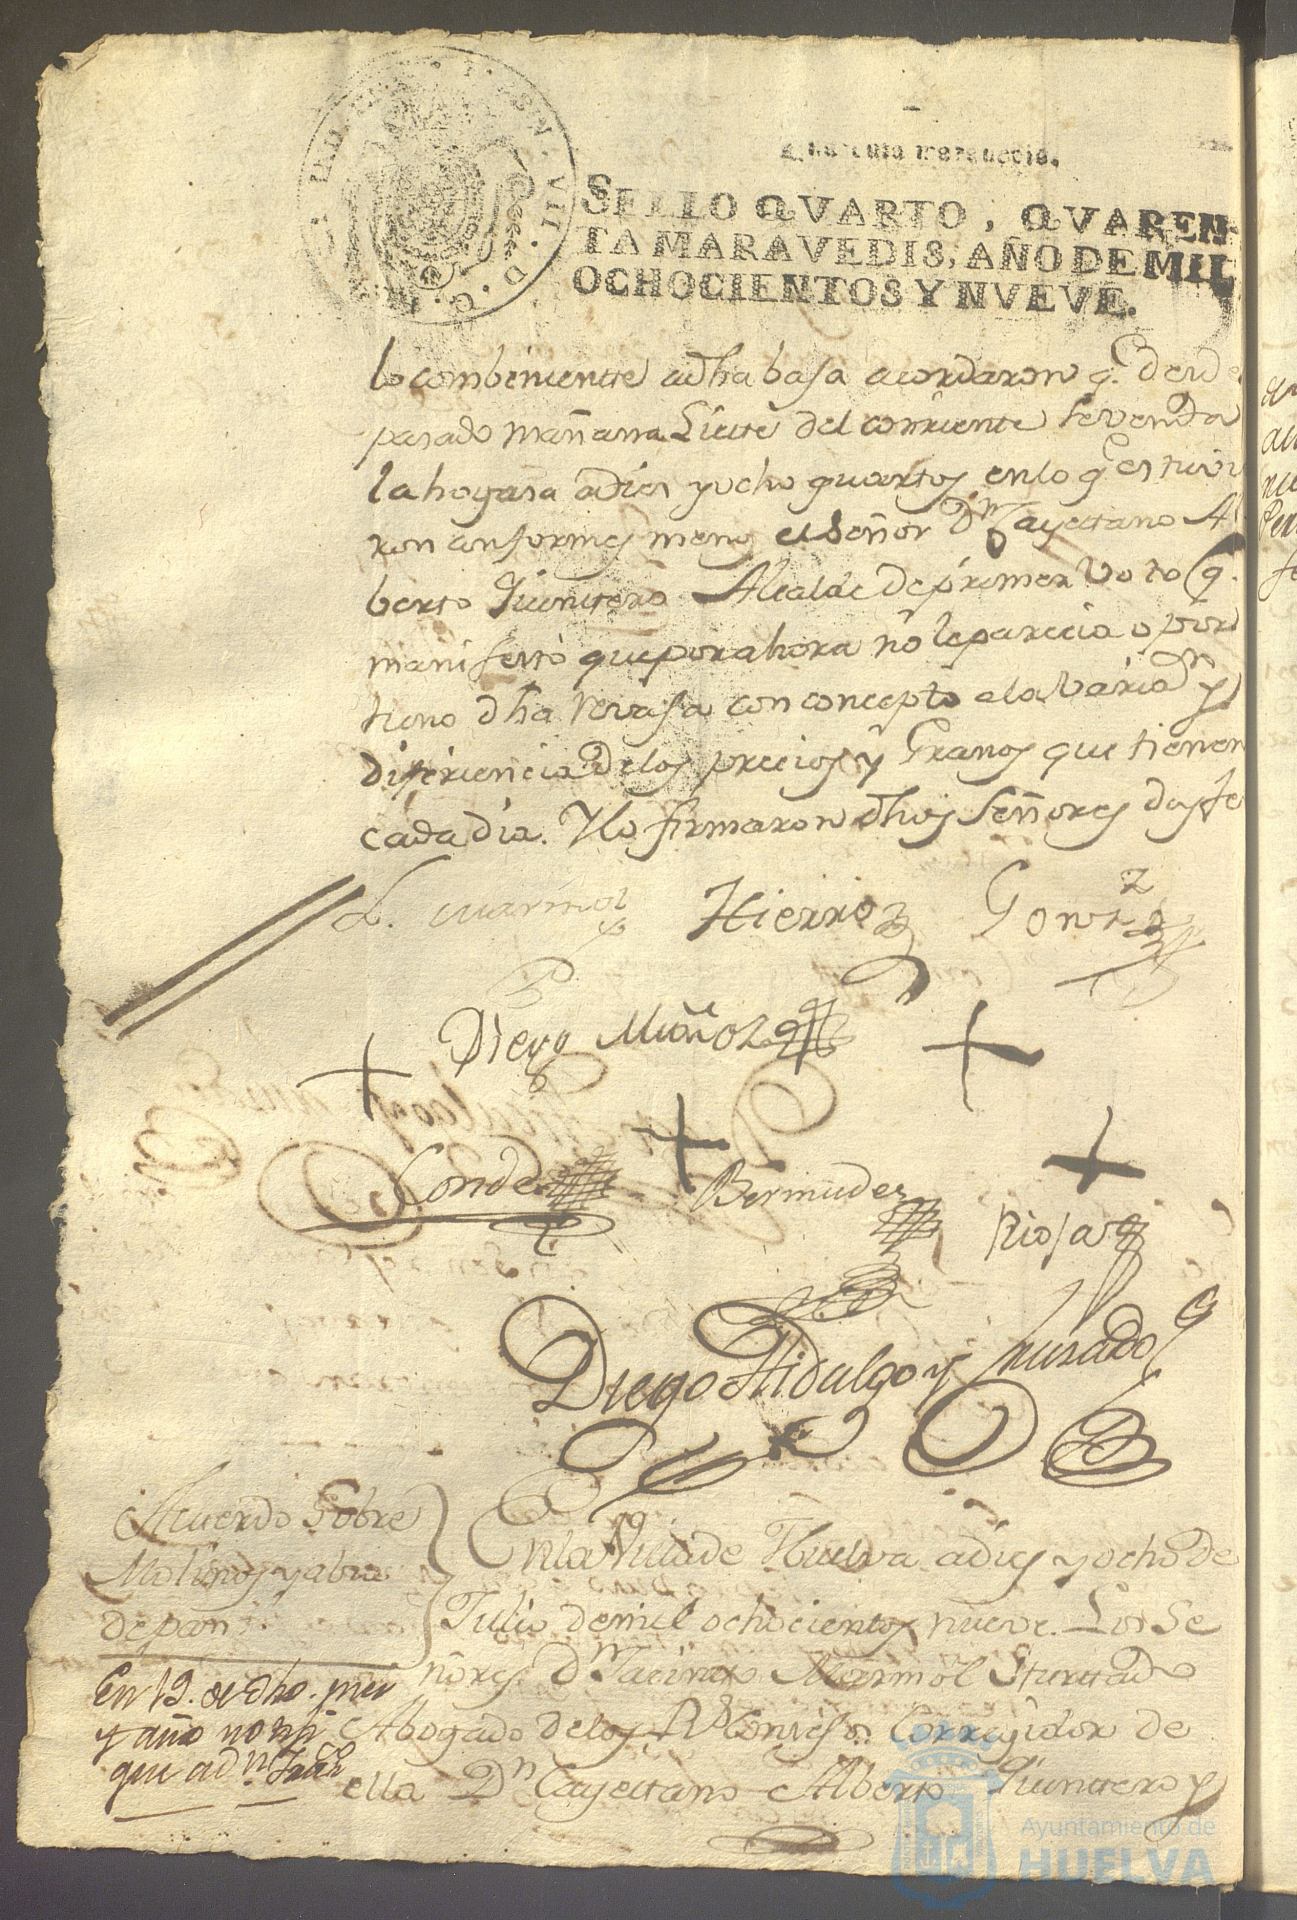 Quarenta maravedis.
SELLO QVARTO, QVAREN-
TA MARAVEDIS, AÑO DE MIL
OCHOCIENTOS Y NVEVE.
lo combeniente adha basa acordaron q.e desde
pasado mañana Siete del corriente se venda
la hogasa a dies y ocho quartos en lo q.e estuvie
ron conformes menos el Señor D.n Cayetano Al
berto Quintero Alcalde de primer Voto (q.
manifestó que por ahora no le parecia opor
tuno dha revasa con concepto a la variad.n y
diferiencia de los precios y Granos que tienen
cada dia. Y lo firmaron dhos Señores doy fe
L. Marmol
Hierro
Gonz.z
Diego Muñoz
Conde
Bermudez
Rioja
Diego Hidalgo y Jurado
Acuerdo Sobre
Molinos y
de pan
En la Villa de Huelva a dies y ocho de
Julio de mil ochocientos nueve. Los Se
ñores D.n Jacinto Marmol Hurtado
Abogado de los R.s Consejos Corregidor de
ella D.n Cayetano Alberto Quintero y
En 19. de dho. mes
y año notifi
que a d.n
Ayuntamiento de
HUELVA